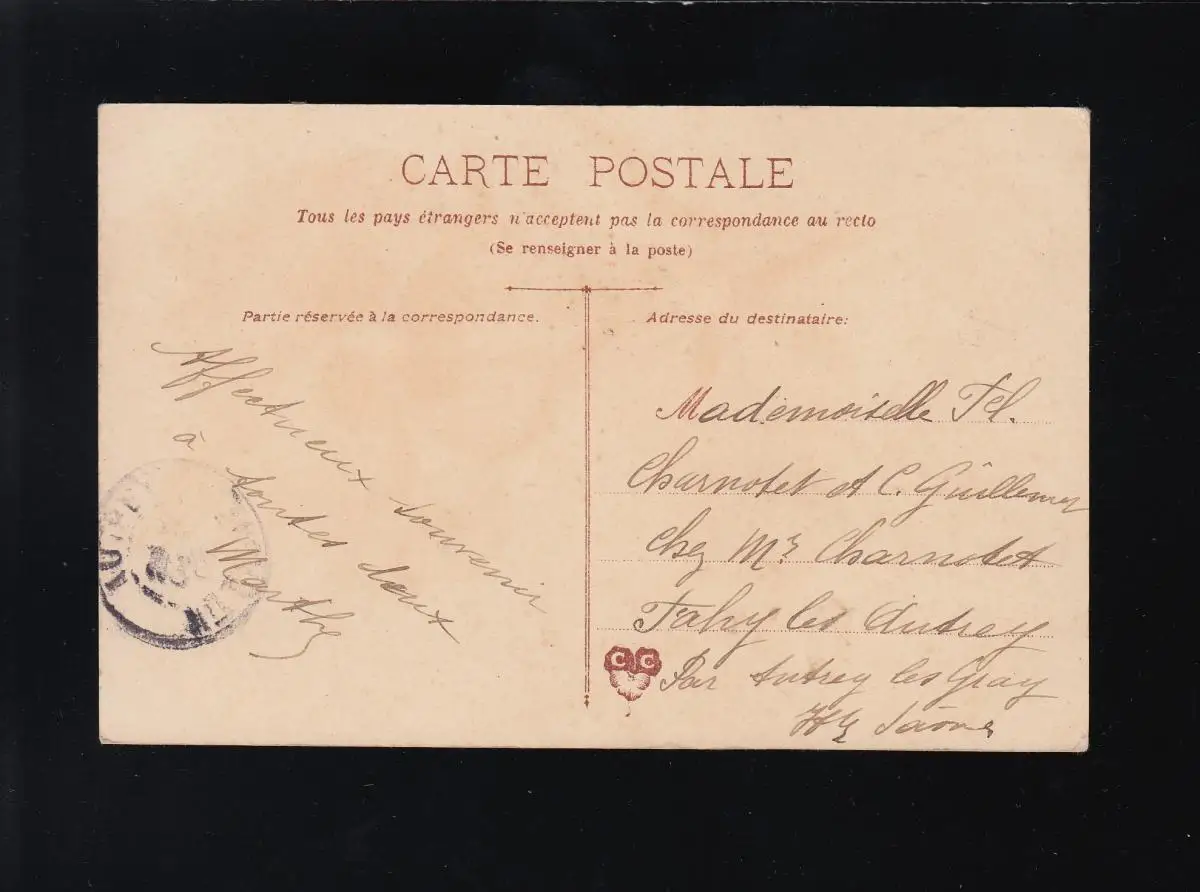 CARTE POSTALE
Tous les pays étrangers n'acceptent pas la correspondance au recto
(Se renseigner à la poste)
Partie réservée à la correspondance.
Affectueux souvenir
à toutes deux
Marthe
Adresse du destinataire:
Mademoiselle Fel.
Charnotet et C. Guillemin
chez Mr Charnotet
Fahy les Autrey
Par Autrey les Gray
Hte Saône
CC